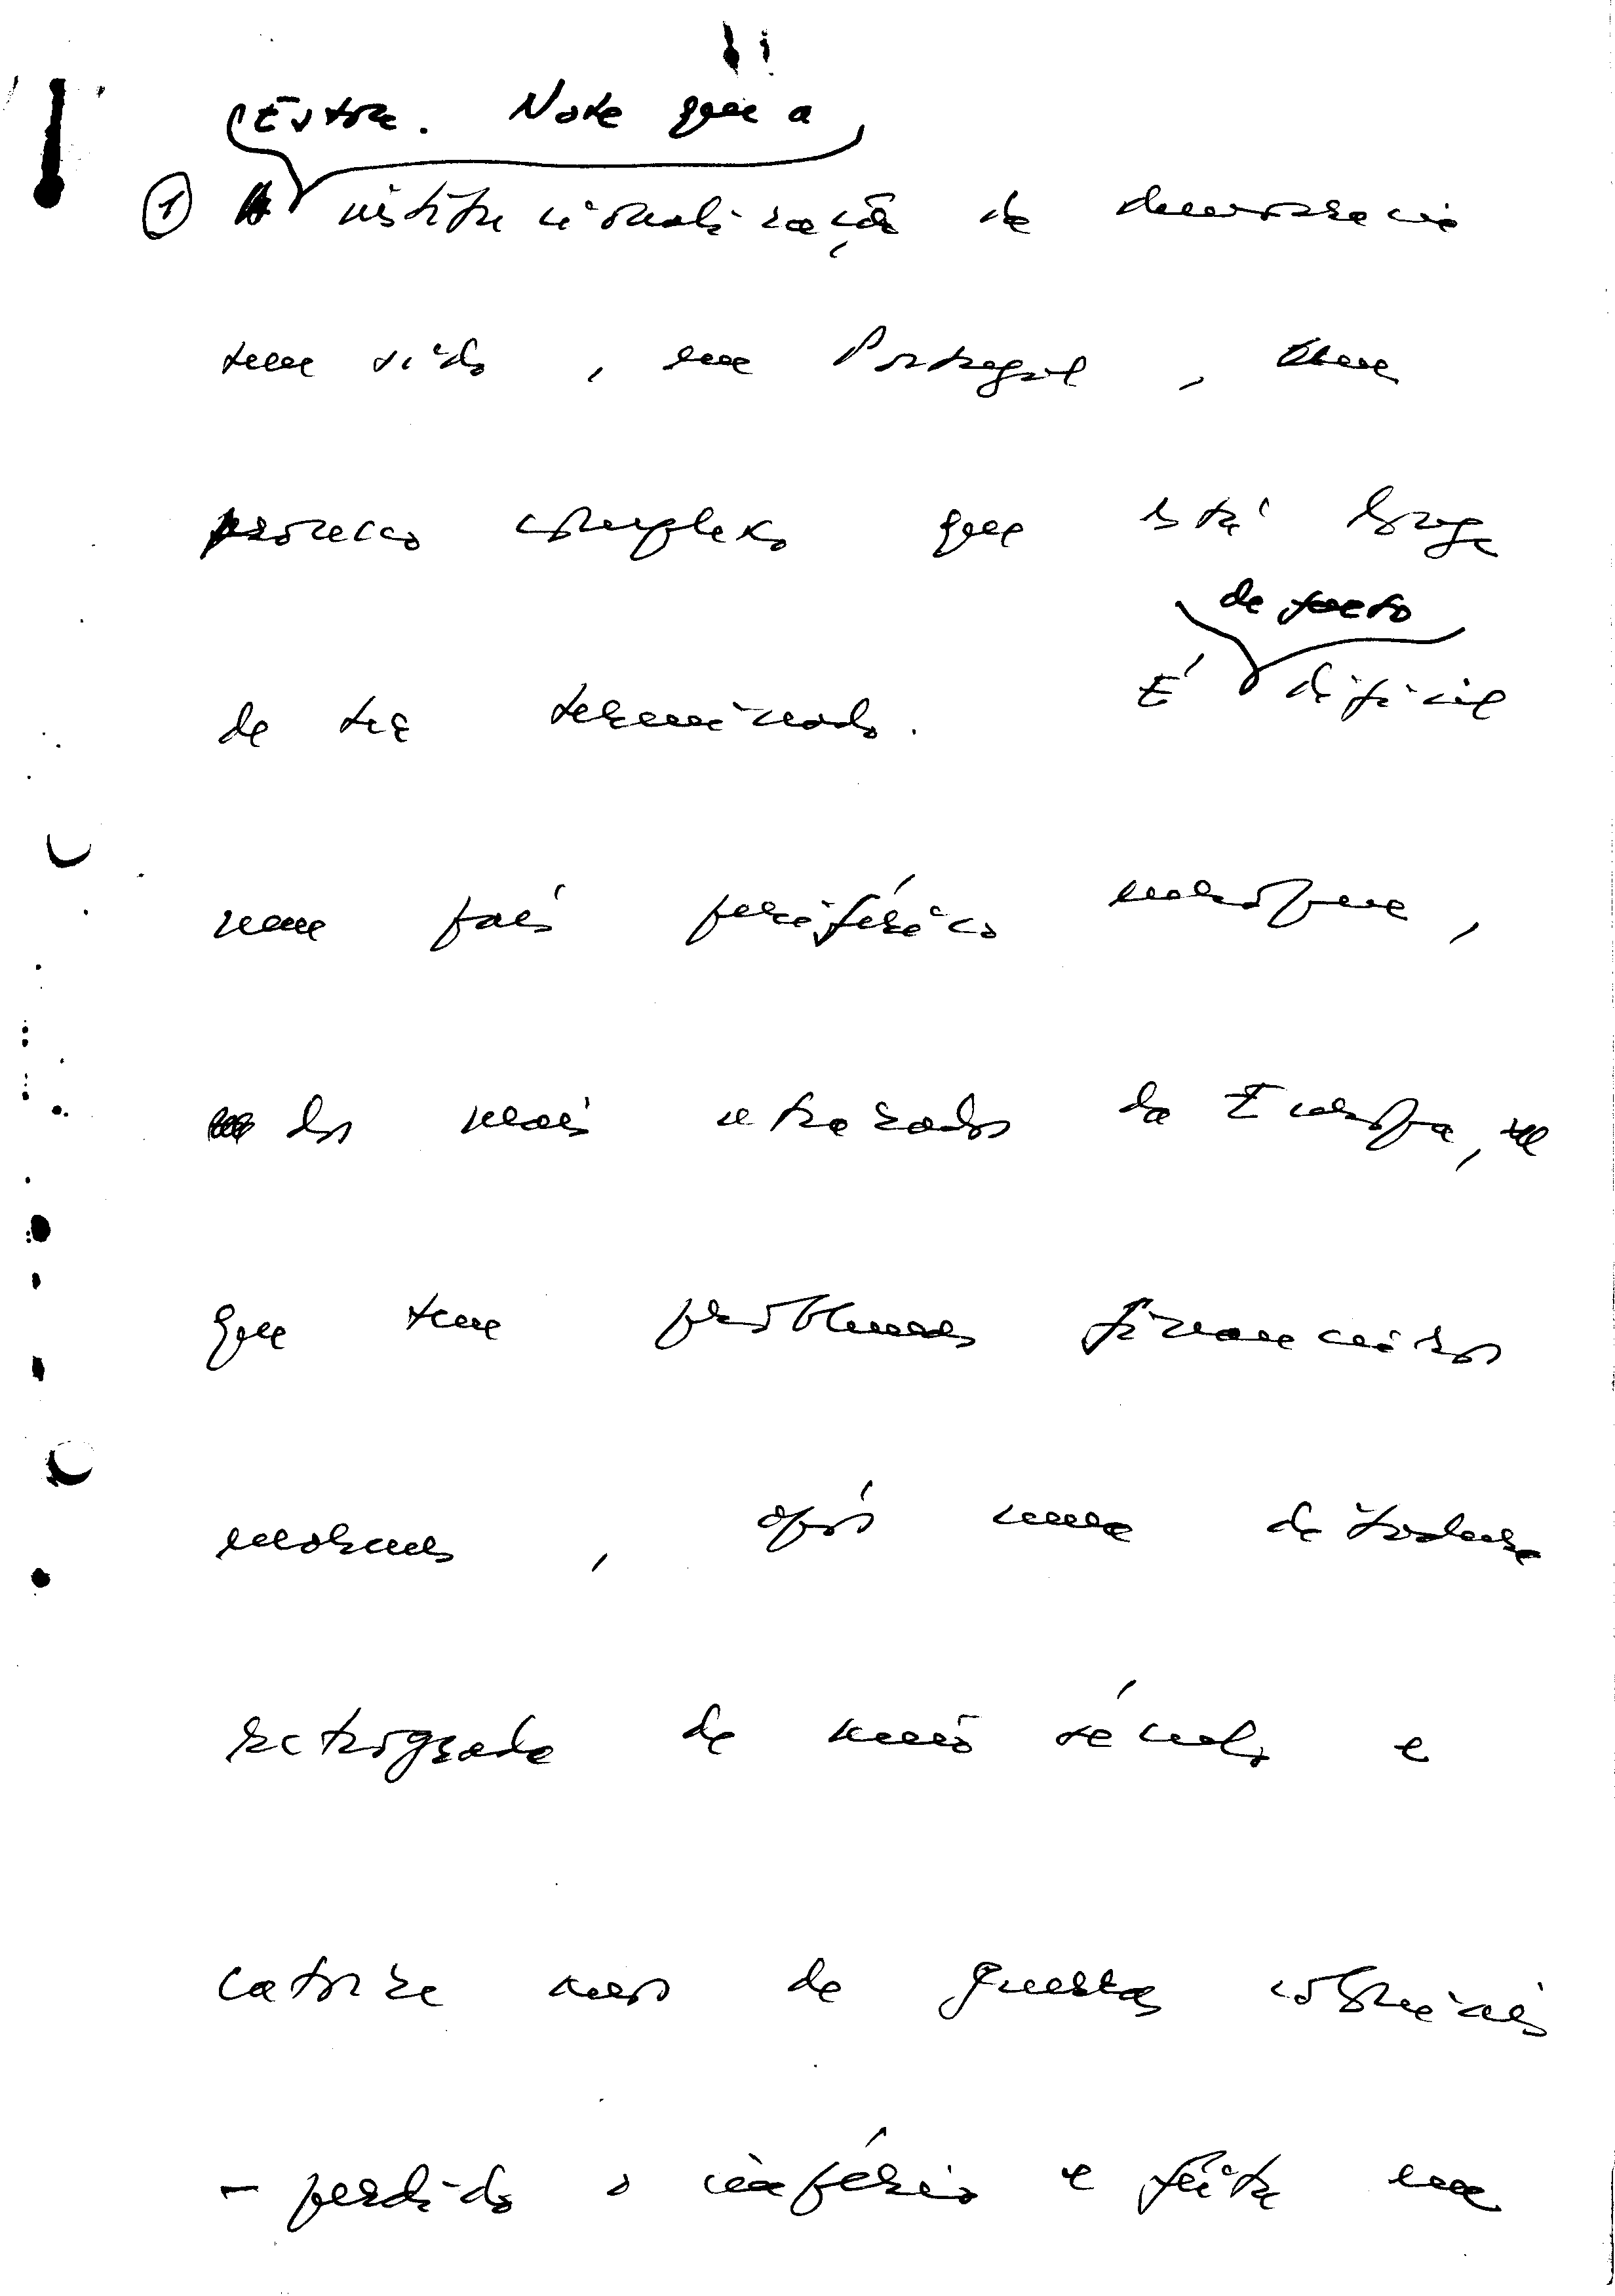 Estou. Note que a
① institucionalização da democracia
tem sido, em Portugal, um
processo complexo que está longe
de ter terminado. É de facto difícil
num país periférico europeu,
dos mais atrasados da Europa,
que tem problemas financeiros
enormes, após uma ditadura
retrógrada de meio século e
catorze anos de guerras coloniais
- perdido o império e feita em